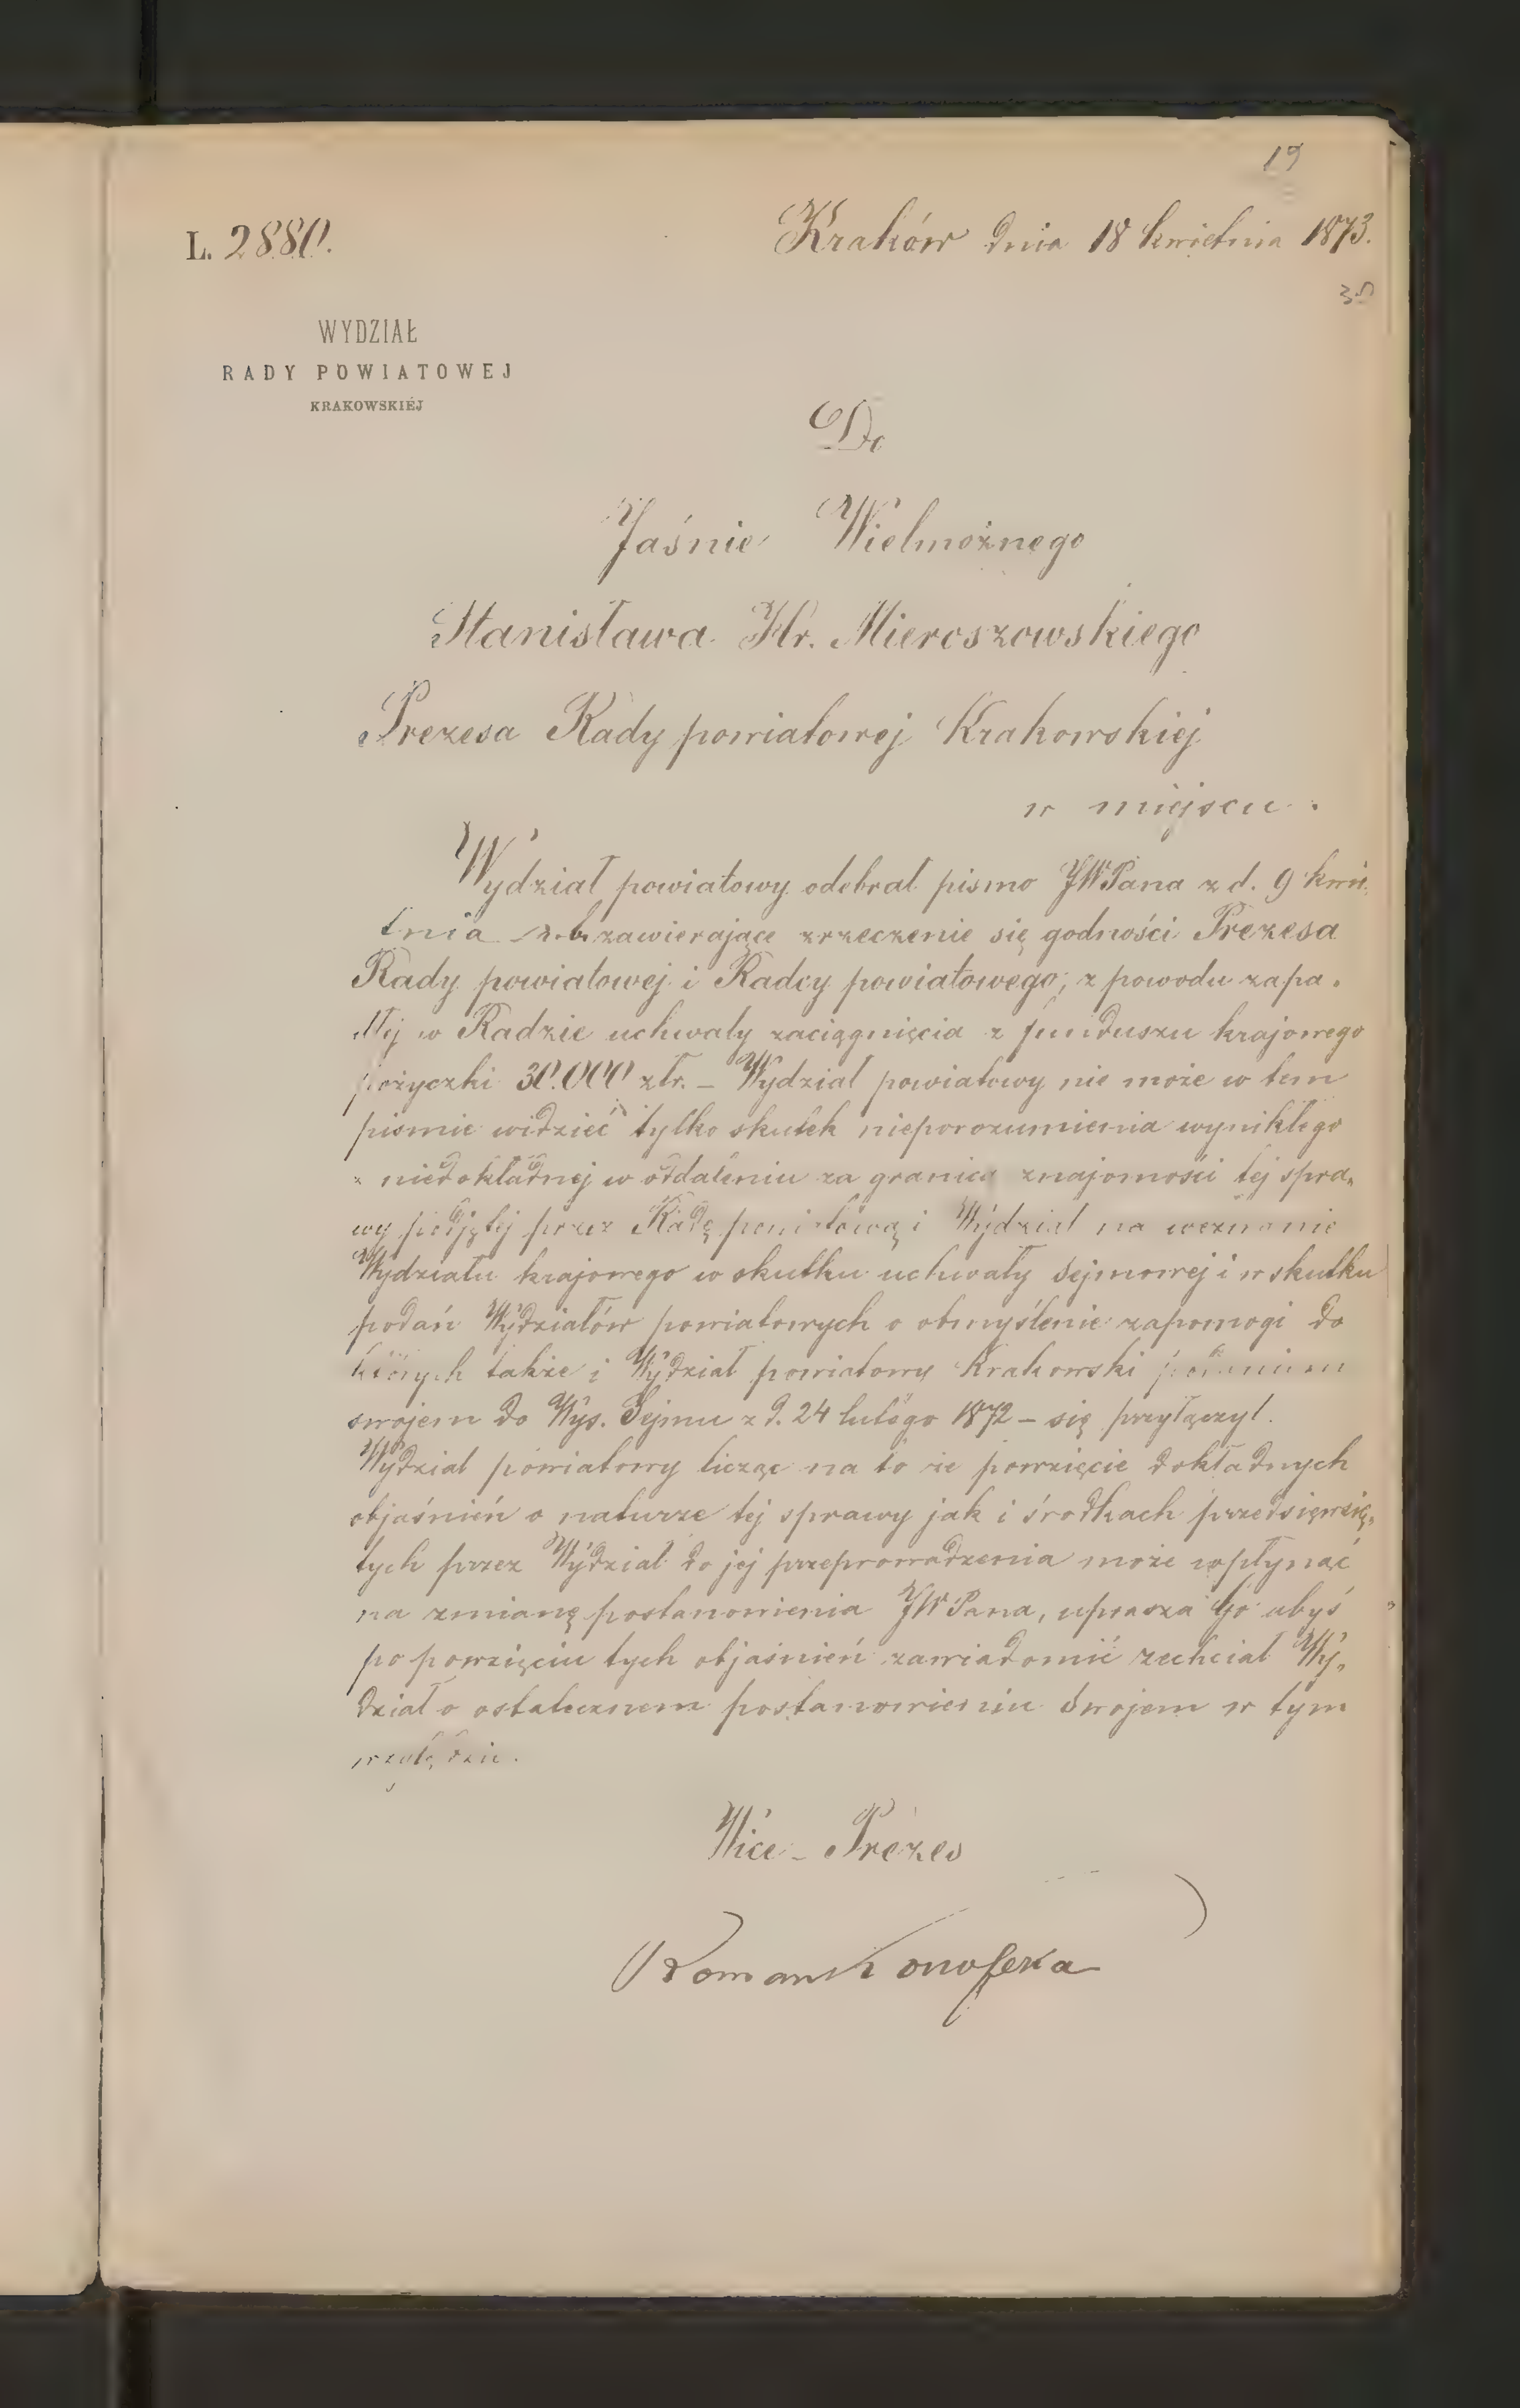 19
L. 2880.
Kraków dnia 18 kwietnia 1873.
35
WYDZIAŁ
RADY POWIATOWEJ
KRAKOWSKIÉJ
Do
Jaśnie Wielmożnego
Stanisława Hr. Mieroszowskiego
Prezesa Rady powiatowej Krakowskiej
w miejscu.
Wydział powiatowy odebrał pismo JWPana z d. 9 kwie„
tnia r.b. zawierające zrzeczenie się godności Prezesa
Rady powiatowej i Radcy powiatowego, z powodu zapa„
dłej w Radzie uchwały zaciągnięcia z funduszu krajowego
pożyczki 30.000 złr. – Wydział powiatowy nie może w tem
pismie widzieć tylko skutek nieporozumienia wynikłego
z niedokładnej w oddaleniu za granicą znajomości tej spra„
wy podjętej przez Radę powiatową i Wydział na wezwanie
Wydziału krajowego w skutku uchwały Sejmowej i w skutku
podań Wydziałów powiatowych o obmyślenie zapomogi do
których także i Wydział powiatowy Krakowski podaniem
swojem do Wys. Sejmu z d. 24 lutego 1872 – się przyłączył.
Wydział powiatowy licząc na to że powzięcie dokładnych
objaśnień o naturze tej sprawy jak i środkach przedsięwzię„
tych przez Wydział do jej przeprowadzenia może wpłynąć
na zmianę postanowienia JWPana, uprasza Go abyś
po powzięciu tych objaśnień zawiadomić zechciał Wy„
dział o ostatecznem postanowieniu Swojem w tym
względzie.
Wice – Prezes
Roman